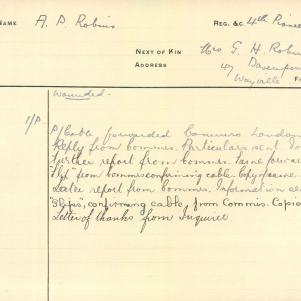 NAME A. P. Robins REG. &C. 4th Pionee
NEXT OF KIN Mrs G. H. Robin
ADDRESS 47 Davenpor
Wayville
wounded.
P/Cable forwarded Commrs London
Reply from Commrs. Particulars sent
Further report from Commrs. Same forwar
"Slip" from Commis confirming cable. Copy of same
Later report from Commrs. Information
"Slips", confirming cable, from Commis. Copie
Letter of thanks from Inquirer